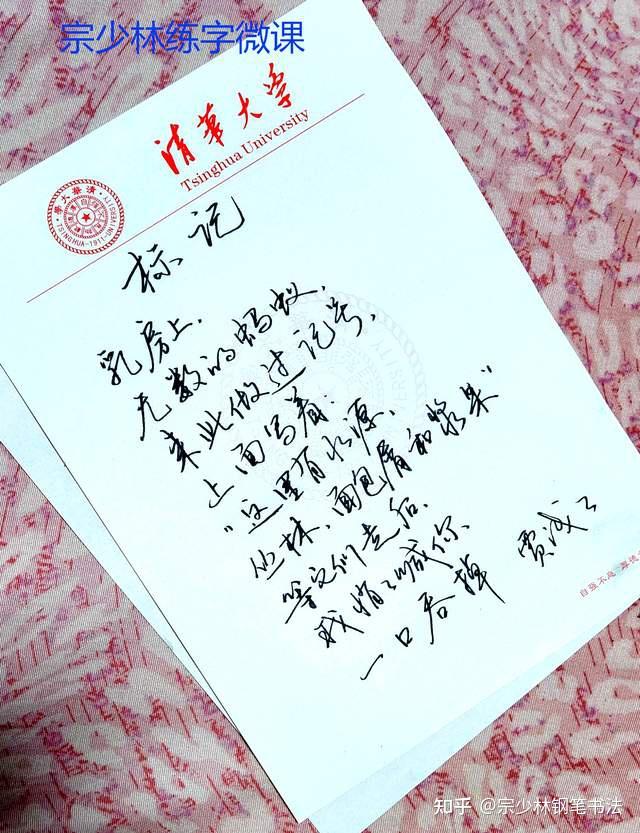 宗少林练字微课
清华大学
Tsinghua University
清华大学
TSINGHUA-1911-UNIVERSITY
标记
乳房上，
无数的蚂蚁，
来此做过记号，
上面写着：
“这里有水源，
丛林，面包屑和浆果”
等它们走后，
我悄悄喊你，
一口吞掉
贾浅浅
自强不息
知乎 @宗少林钢笔书法